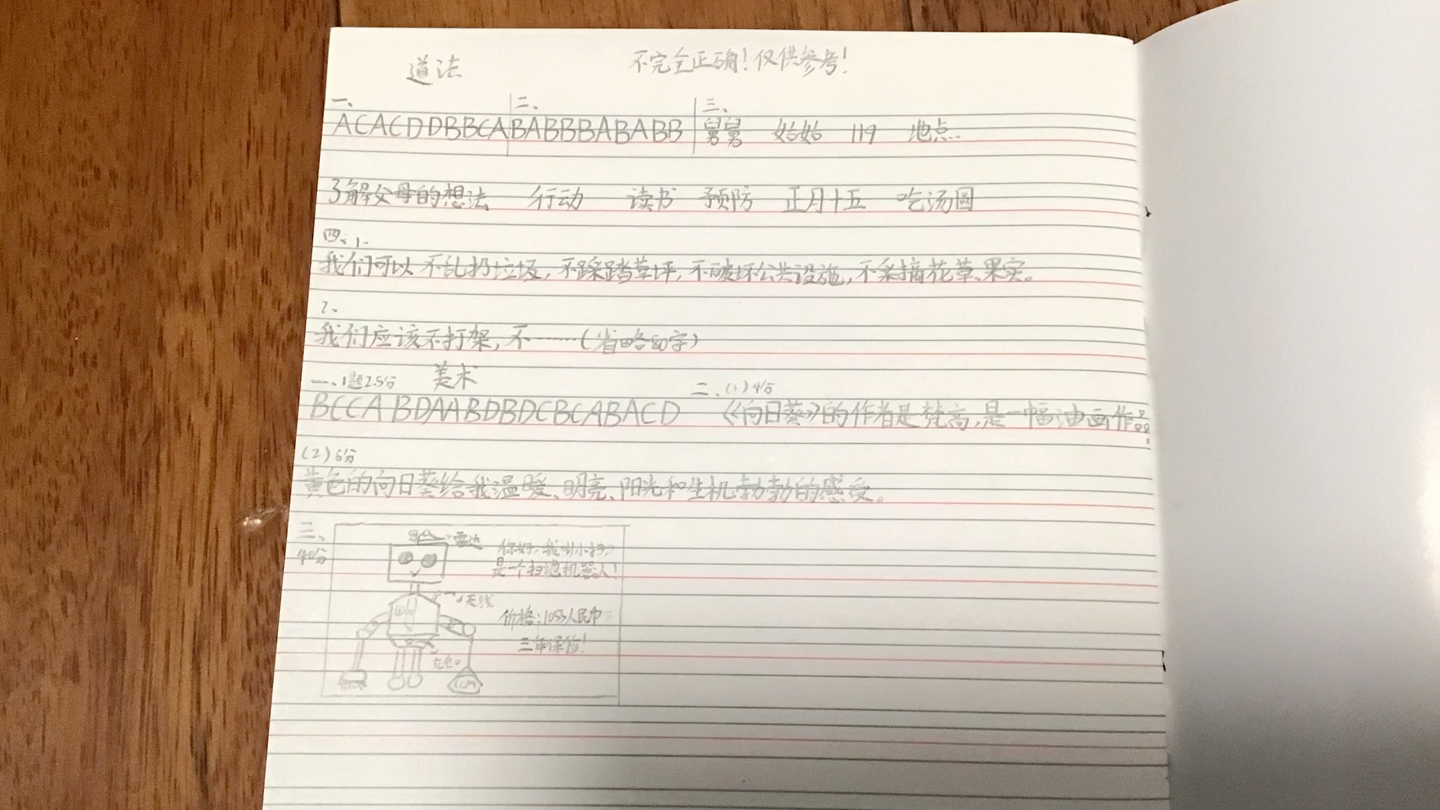 道法 不完全正确！仅供参考！
一、 二、 三、
ACACDDBBCA BABBBABABB 舅舅 始始 119 地点
了解父母的想法 行动 读书 预防 正月十五 吃汤圆
四、1.
我们可以不乱扔垃圾，不踩踏草坪，不破坏公共设施，不采摘花草、果实。
2、
我们应该不打架，不……（省略80字）
一、1题2.5分 美术 二、（1）4分
BCCABDAABDBDCBCABACD 《向日葵》的作者是梵高，是一幅油画作品。
（2）6分
黄色的向日葵给我温暖、明亮、阳光和生机勃勃的感受。
三、
40分
雷达
你好，我叫小扫，
是个扫地机器人！
天线
价格：1053人民币
三年保修！